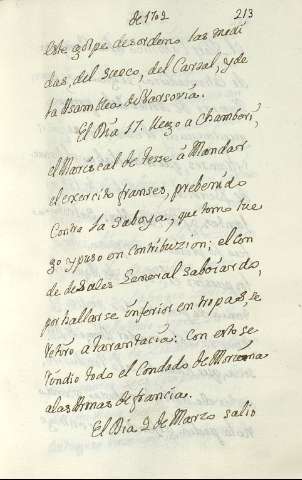 de 1702 213
este golpe desordeno las medi
das, del sueco, del Carzal, y de
la Asamblea de Varsovia.
El Dia 17. llego a Chamberi,
el Mariscal de Tesse â Mandar
el exercito franses, prebenido
Contra la Saboya, que tomo lue
go y puso en contribuzion; el con
de de Sales General saboiardo,
por hallarse ynferior en tropas, se
retiro a tarantacia: Con esto se
rindio todo el Condado de Moriena
a las Armas de francia.
El Dia 2 de Marzo salio